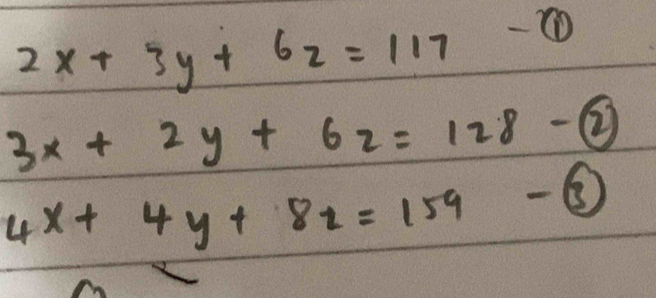 2x + 3y + 6z = 117 - ①
3x + 2y + 6z = 128 - ②
4x + 4y + 8z = 159 - ③